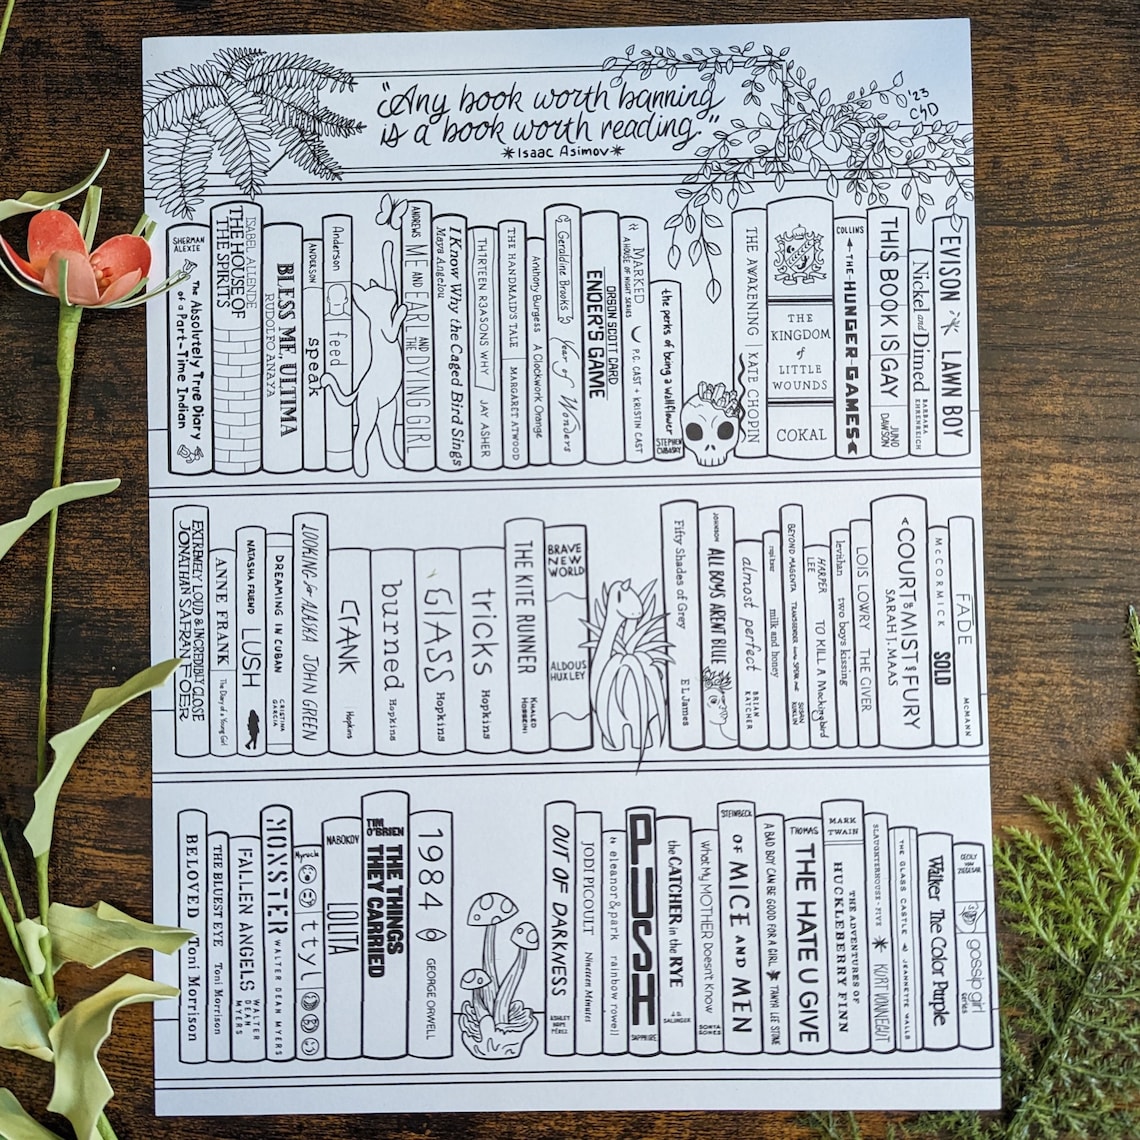 "Any book worth banning
is a book worth reading."
*Isaac Asimov*
'23
CSD
SHERMAN ALEXIE
The Absolutely True Diary
of a Part-Time Indian
ISABEL ALLENDE
THE HOUSE OF
THE SPIRITS
BLESS ME, ULTIMA
RUDOLFO ANAYA
ANDERSON
speak
Anderson
feed
ANDREWS
ME AND EARL AND
THE DYING GIRL
I Know Why the Caged Bird Sings
Maya Angelou
TH1RTEEN R3ASONS WHY
JAY ASHER
THE HANDMAID'S TALE
MARGARET ATWOOD
Anthony Burgess
A Clockwork Orange
Geraldine Brooks
Year of Wonders
ORSON SCOTT CARD
ENDER'S GAME
MARKED
A HOUSE OF NIGHT SERIES
P.C. CAST + KRISTIN CAST
the perks of being a wallflower
STEPHEN
CHBOSKY
THE AWAKENING
KATE CHOPIN
THE
KINGDOM
of
LITTLE
WOUNDS
COKAL
COLLINS
THE HUNGER GAMES
THIS BOOK IS GAY
JUNO
DAWSON
Nickel and Dimed
BARBARA
EHRENREICH
EVISON
LAWN BOY
EXTREMELY LOUD & INCREDIBLY CLOSE
JONATHAN SAFRAN FOER
ANNE FRANK
The Diary of a Young Girl
NATASHA FRIEND
LUSH
DREAMING IN CUBAN
CRISTINA
GARCIA
LOOKING for ALASKA
JOHN GREEN
CRANK
Hopkins
burned
Hopkins
GLASS
Hopkins
tricks
Hopkins
THE KITE RUNNER
KHALED
HOSSEINI
BRAVE
NEW
WORLD
ALDOUS
HUXLEY
Fifty Shades of Grey
E L James
JOHNSON
ALL BOYS AREN'T BLUE
almost perfect
BRIAN
KATCHER
rupi kaur
milk and honey
BEYOND MAGENTA
SUSAN
KUKLIN
HARPER
LEE
TO KILL A Mockingbird
levithan
two boys kissing
LOIS LOWRY
THE GIVER
A COURT of MIST and FURY
SARAH J. MAAS
McCORMICK
SOLD
FADE
MCMANN
BELOVED
Toni Morrison
THE BLUEST EYE
Toni Morrison
FALLEN ANGELS
WALTER
DEAN
MYERS
MONSTER
WALTER DEAN MYERS
Myracle
ttyl
NABOKOV
LOLITA
TIM
O'BRIEN
THE THINGS
THEY CARRIED
1984
GEORGE ORWELL
OUT OF DARKNESS
ASHLEY
HOPE
PÉREZ
JODI PICOULT
Nineteen Minutes
eleanor & park
rainbow rowell
PUSH
SAPPHIRE
the CATCHER in the RYE
SALINGER
What My MOTHER Doesn't Know
SONYA
SONES
STEINBECK
OF MICE AND MEN
A BAD BOY CAN BE GOOD FOR A GIRL
TANYA LEE STONE
THOMAS
THE HATE U GIVE
MARK
TWAIN
THE ADVENTURES OF
HUCKLEBERRY FINN
SLAUGHTERHOUSE-FIVE
KURT VONNEGUT
THE GLASS CASTLE
JEANNETTE WALLS
Walker
The Color Purple
CECILY
VON
ZIEGESAR
gossip girl
series